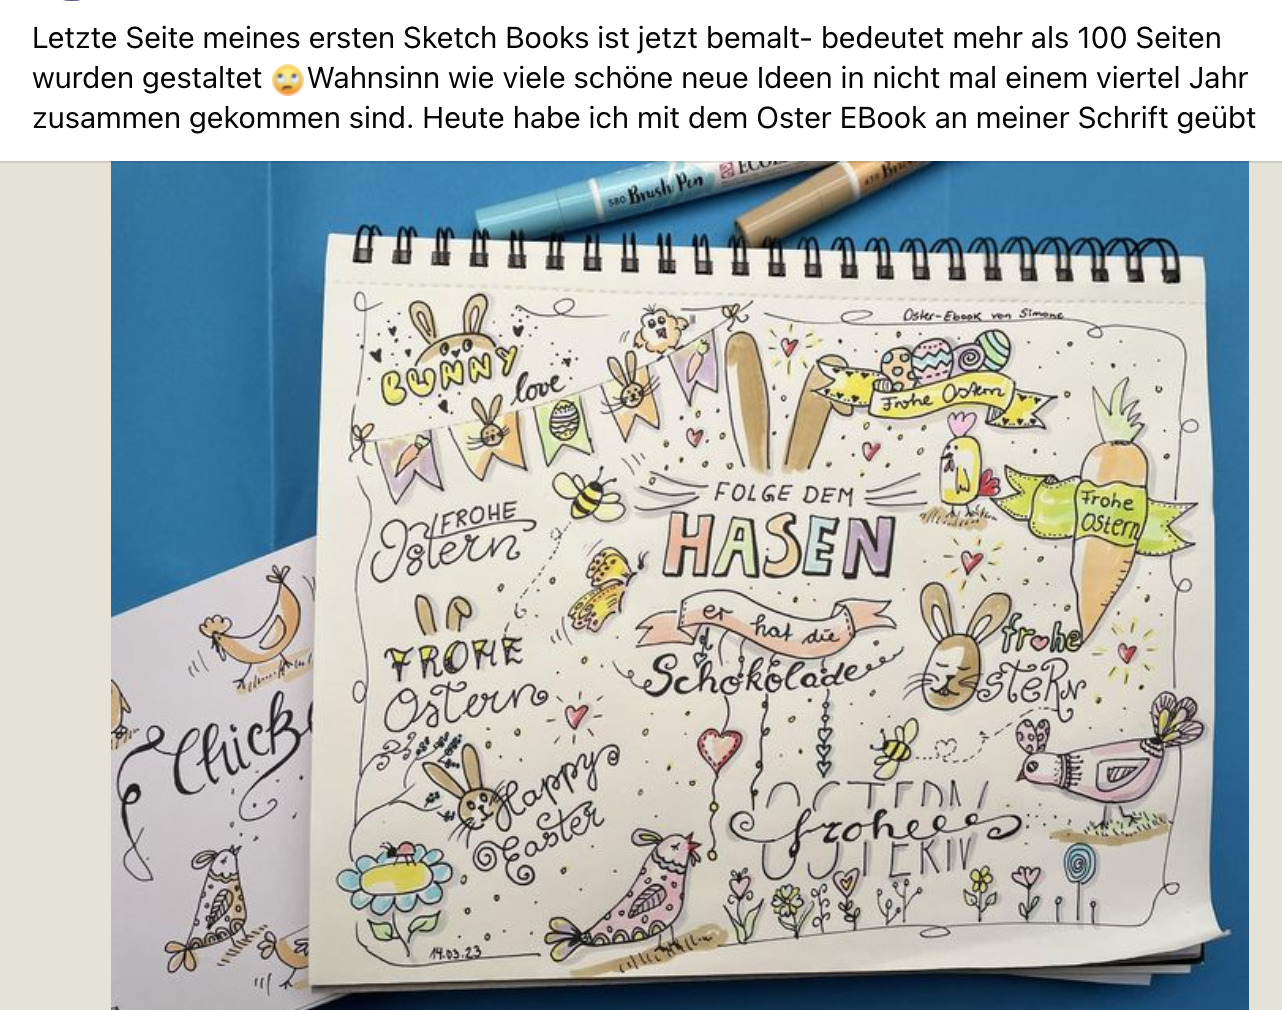 Letzte Seite meines ersten Sketch Books ist jetzt bemalt- bedeutet mehr als 100 Seiten
wurden gestaltet 🙄Wahnsinn wie viele schöne neue Ideen in nicht mal einem viertel Jahr
zusammen gekommen sind. Heute habe ich mit dem Oster EBook an meiner Schrift geübt
580 Brush Pen
ECO
Oster-Ebook von Simone
BUNNY
love
Frohe Ostern
FOLGE DEM
HASEN
er hat die
Schokolade
Frohe
Ostern
FROHE
Ostern
FROHE
Ostern
frohe
OSteRN
Happy
Easter
OSTERN
froheees
14.03.23
Chick